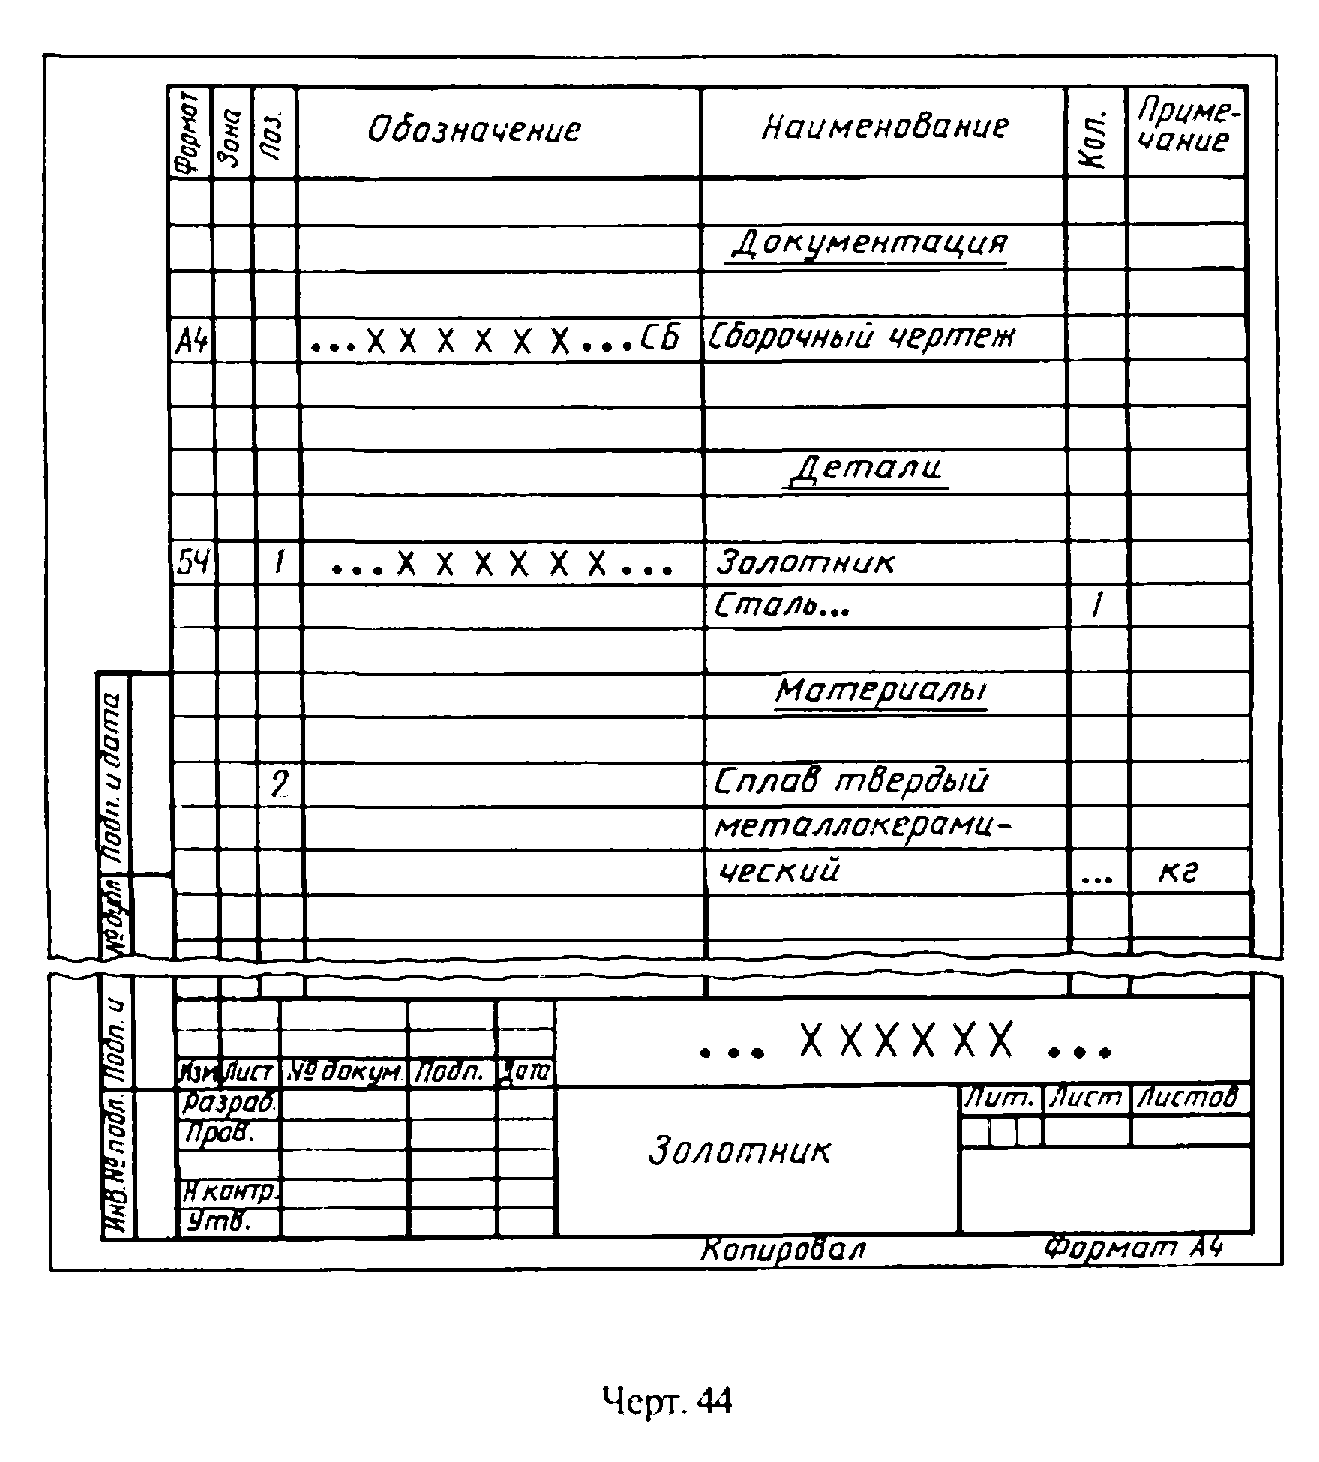 Формат Зона Поз. Обозначение Наименование Кол. Приме-
чание
Документация
А4 ...ХХХХХХ...СБ Сборочный чертеж
Детали
БЧ 1 ...ХХХХХХ... Золотник
Сталь... 1
Материалы
2 Сплав твердый
металлокерами-
ческий ... кг
Подп. и дата
№ дубл
Подп. и
Инв. № подл.
... ХХХХХХ ...
Изм Лист № докум. Подп. Дата
Разраб.
Пров.
Н контр.
Утв.
Золотник
Лит. Лист Листов
Копировал Формат А4
Черт. 44